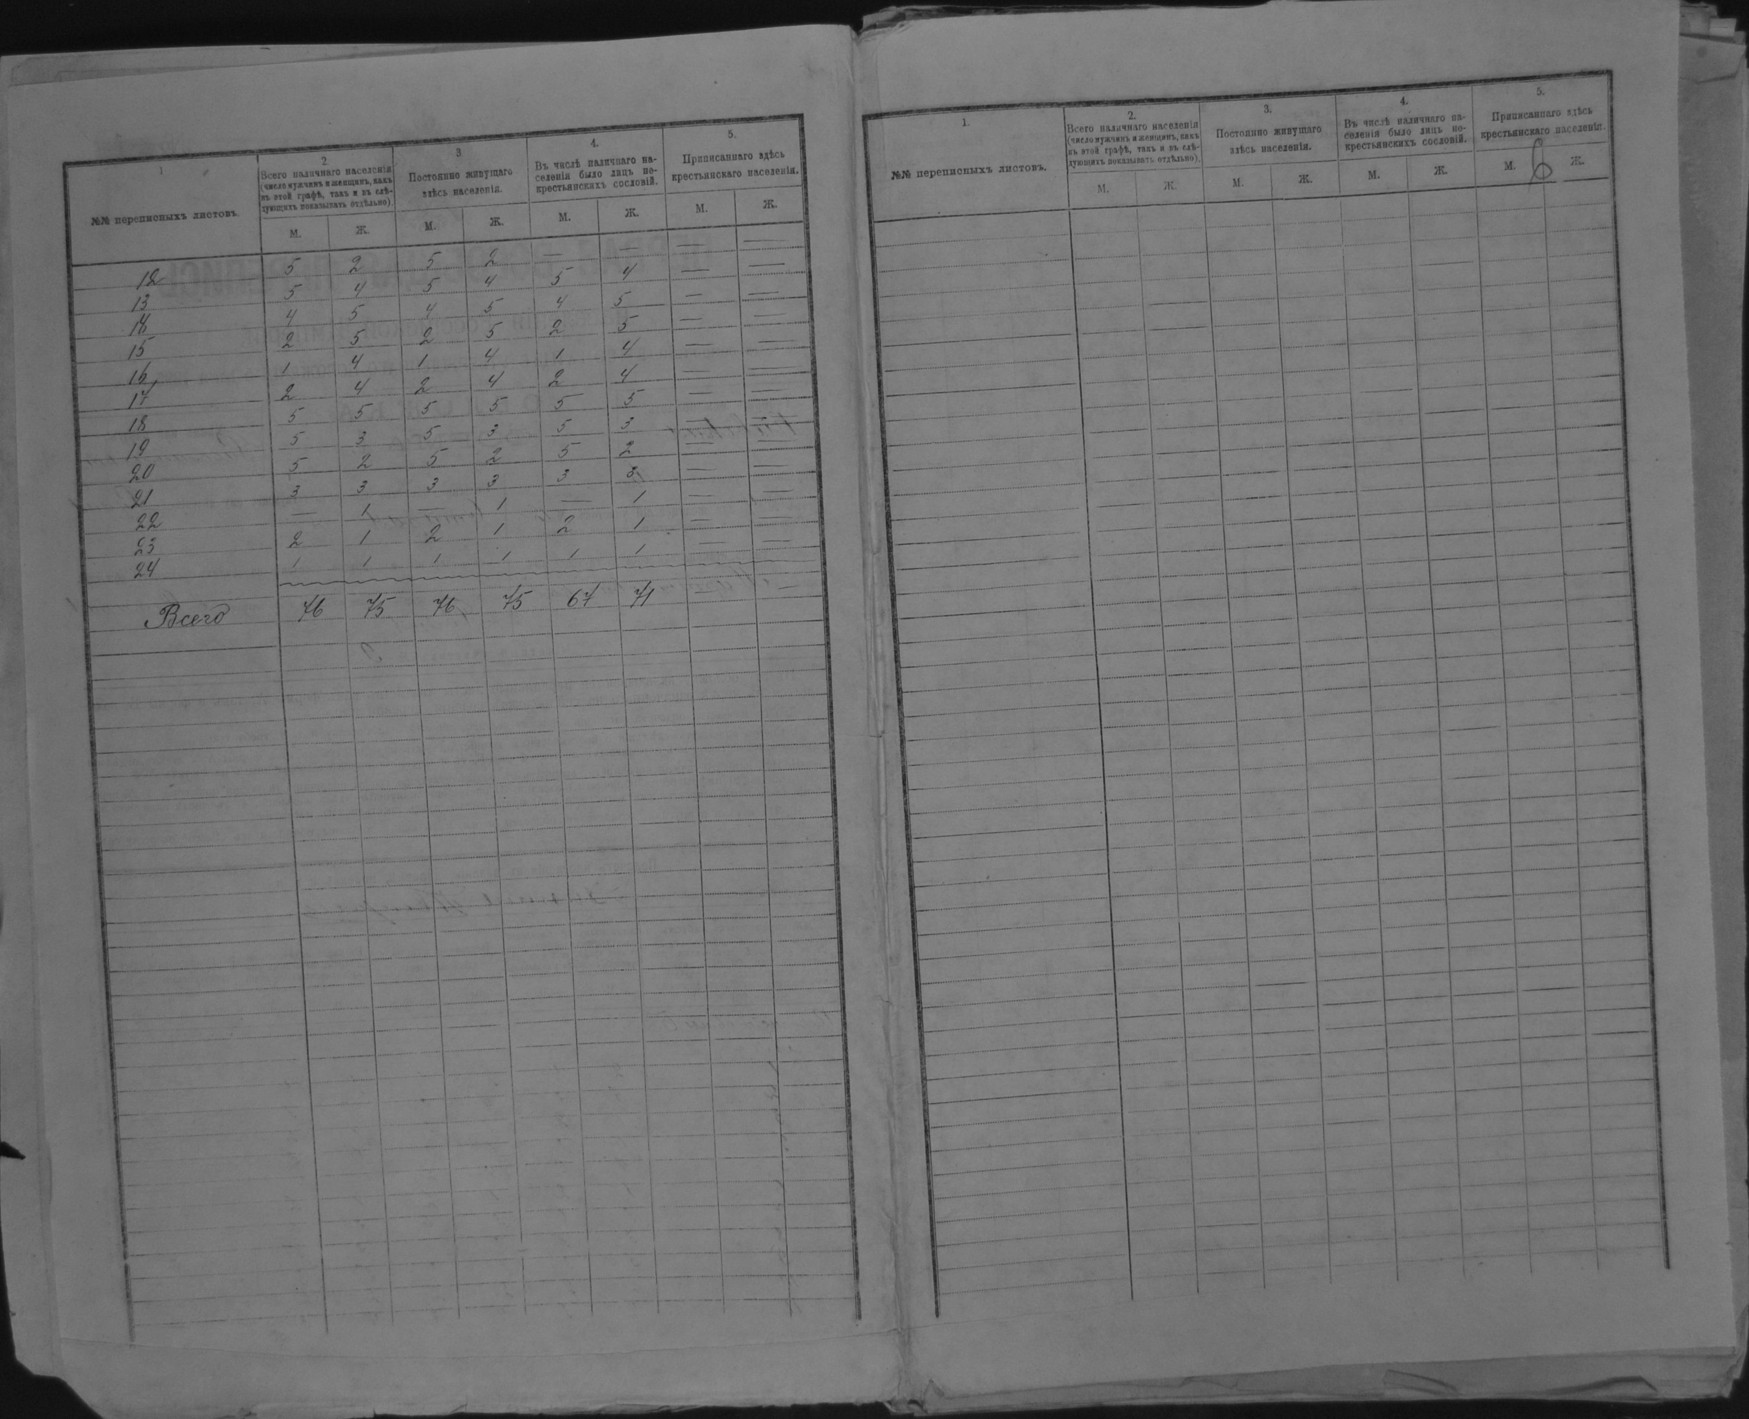 1
№№ переписныхъ листовъ.
2
Всего наличнаго населенія
(число мужчинъ и женщинъ, какъ
въ этой графѣ, такъ и въ слѣ-
дующихъ показывать отдѣльно)
3
Постоянно живущаго
здѣсь населенія.
4.
Въ числѣ наличнаго на-
селенія было лицъ не-
крестьянскихъ сословій.
5.
Приписаннаго здѣсь
крестьянскаго населенія.
М. Ж. М. Ж. М. Ж. М. Ж.
12 5 2 5 2 — — — —
13 5 4 5 4 5 4 — —
14 4 5 4 5 4 5 — —
15 2 5 2 5 2 5 — —
16 1 4 1 4 1 4 — —
17 2 4 2 4 2 4 — —
18 5 5 5 5 5 5 — —
19 5 3 5 3 5 3 — —
20 5 2 5 2 5 2 — —
21 3 3 3 3 3 3 — —
22 — 1 — 1 — 1 — —
23 2 1 2 1 2 1 — —
24 1 1 1 1 1 1 — —
Всего 76 75 76 75 67 71 — —
1.
№№ переписныхъ листовъ.
2.
Всего наличнаго населенія
(число мужчинъ и женщинъ, какъ
въ этой графѣ, такъ и въ слѣ-
дующихъ показывать отдѣльно).
3.
Постоянно живущаго
здѣсь населенія.
4.
Въ числѣ наличнаго на-
селенія было лицъ не-
крестьянскихъ сословій.
5.
Приписаннаго здѣсь
крестьянскаго населенія.
М. Ж. М. Ж. М. Ж. М. Ж.